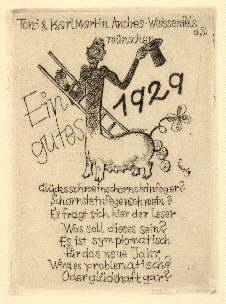 Toni & Karl Martin Andres-Weissenfels
a.S.
wünschen
Ein
gutes
1929
Glücksschweinschornsteinfeger?
Schornsteinfegerschwein?
Es fragt sich hier der Leser
Was soll dieses sein?
Es ist symptomatisch
für das neue Jahr.
Wird es problematisch?
Oder glückhaft gar?